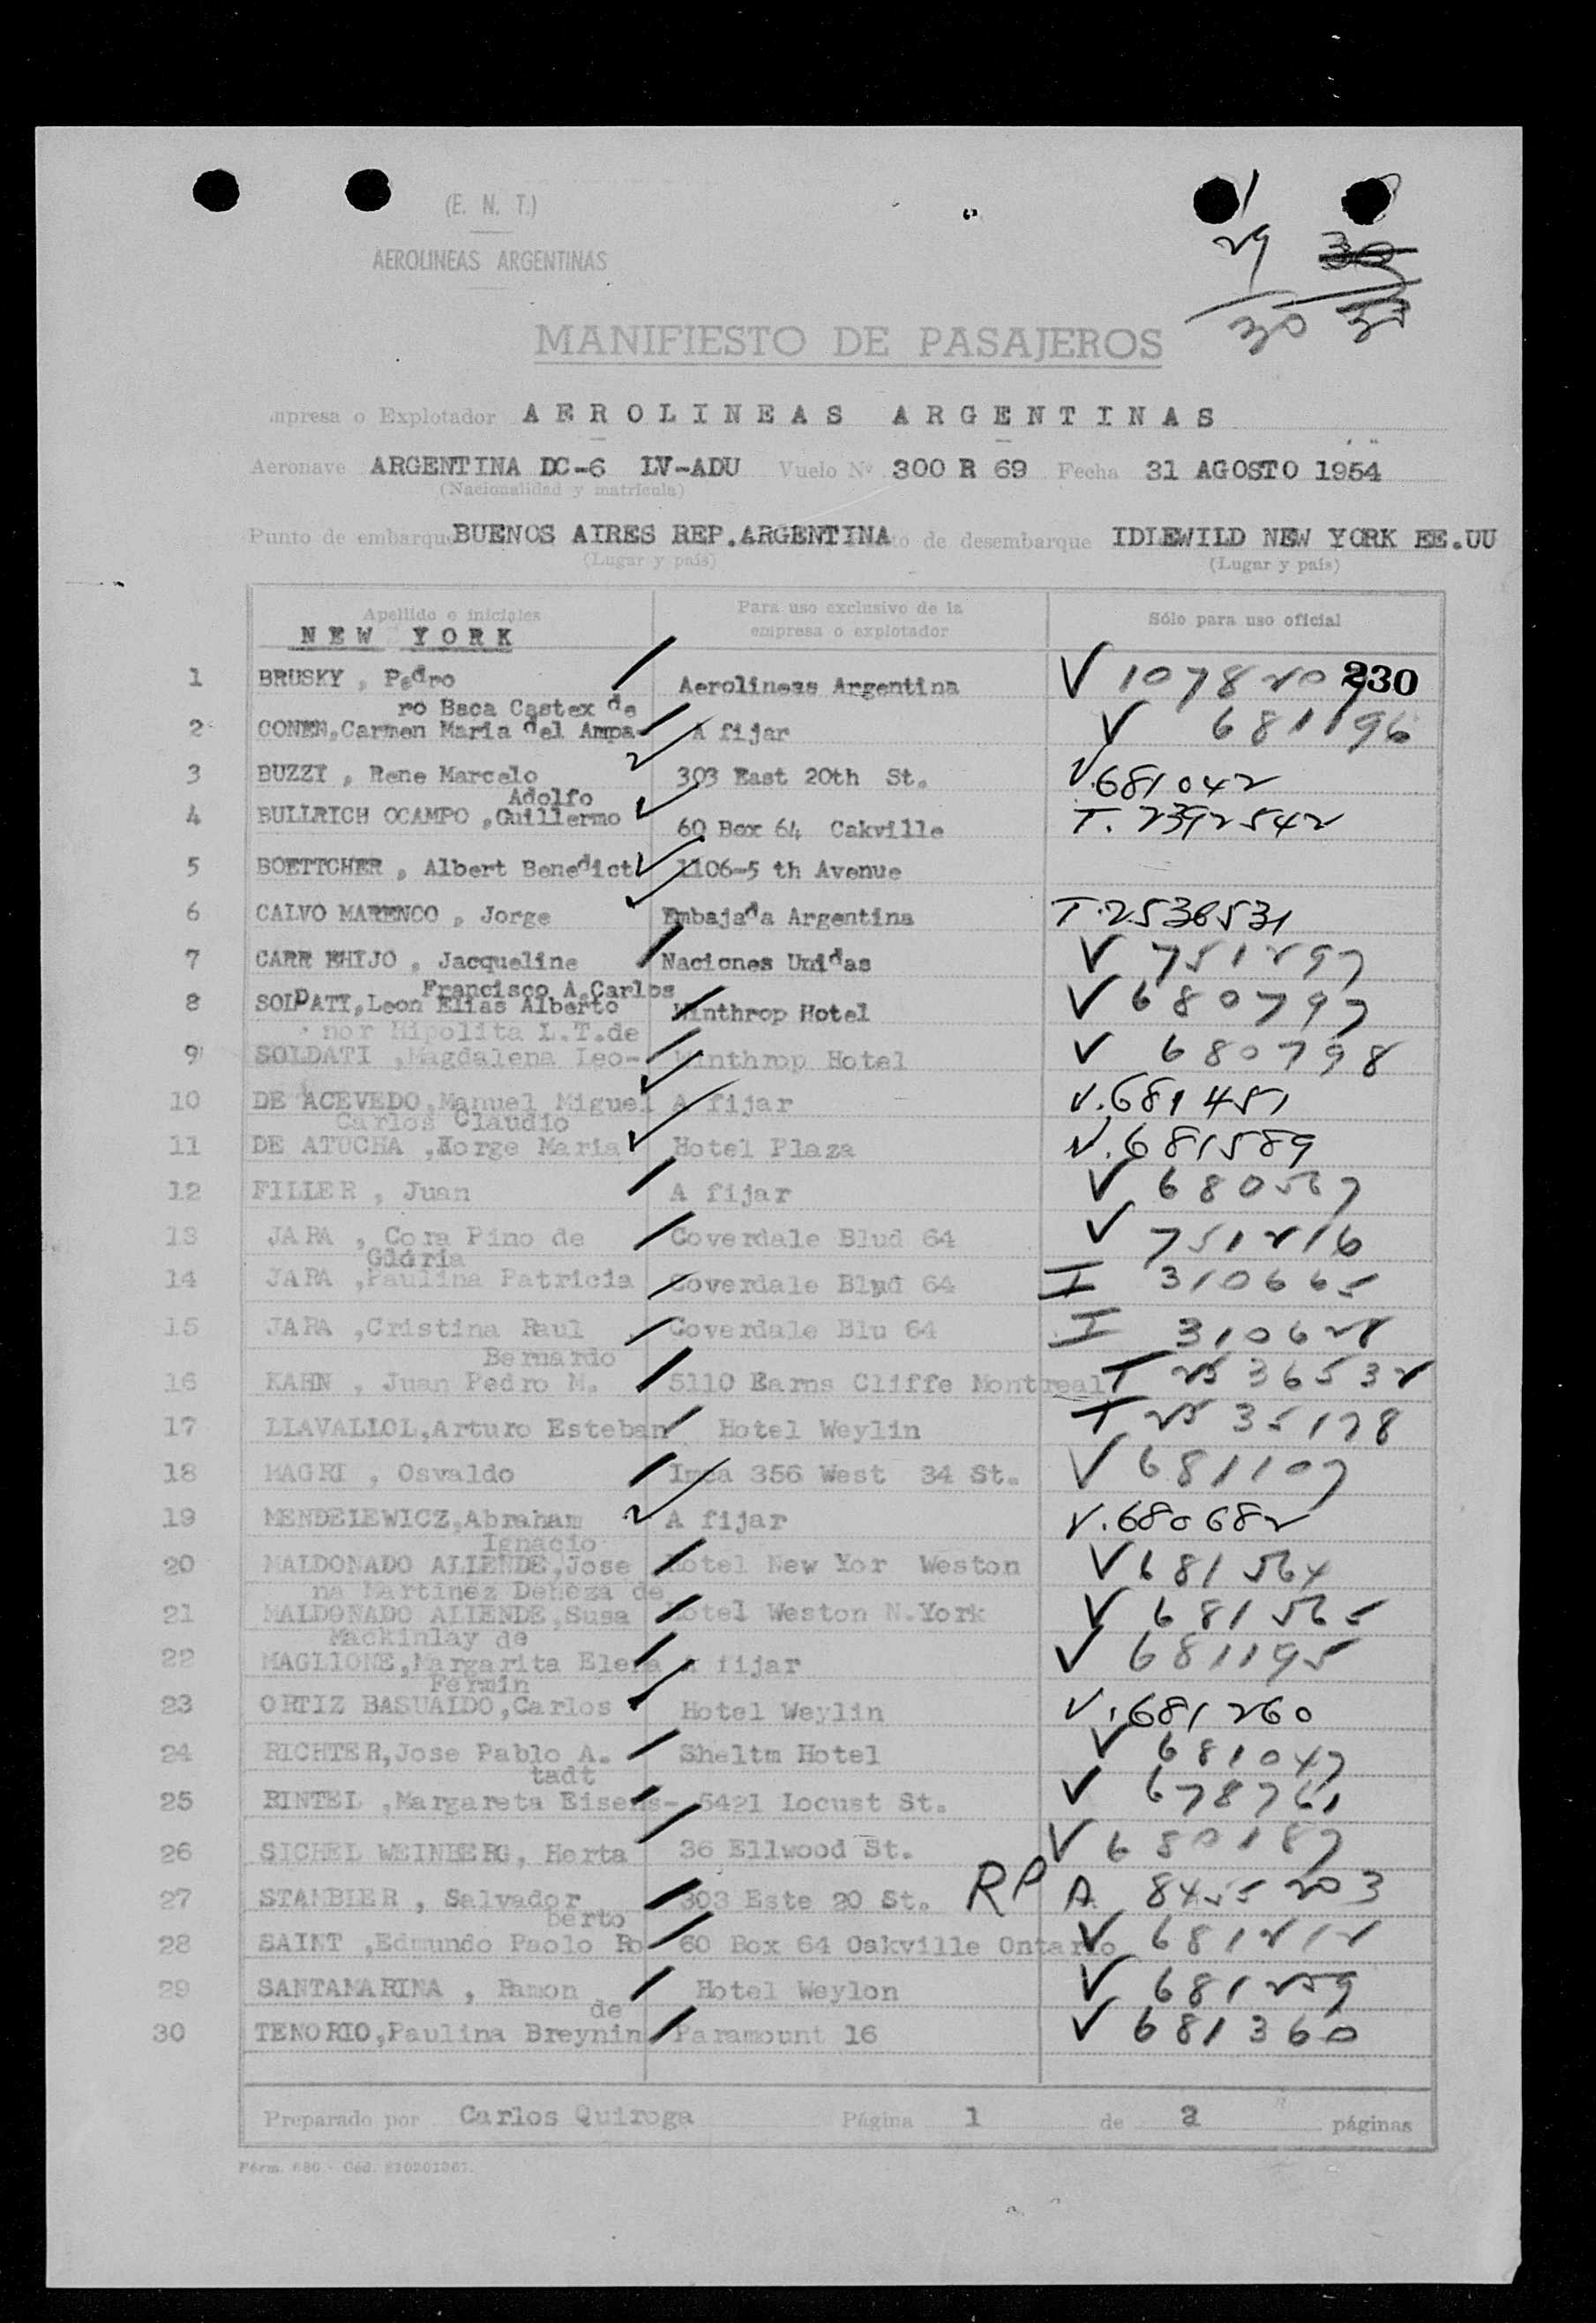 (E. N. T.)
AEROLINEAS ARGENTINAS
29 30
30
MANIFIESTO DE PASAJEROS
mpresa o Explotador AEROLINEAS ARGENTINAS
Aeronave ARGENTINA DC-6 LV-ADU Vuelo Nº 300 R 69 Fecha 31 AGOSTO 1954
(Nacionalidad y matrícula)
Punto de embarqu BUENOS AIRES REP.ARGENTINA to de desembarque IDLEWILD NEW YORK EE.UU
(Lugar y país) (Lugar y país)
Apellido e iniciales Para uso exclusivo de la empresa o explotador Sólo para uso oficial
NEW YORK
1 BRUSKY , Pedro Aerolineas Argentina V 10782 230
ro Baca Castex de
2 CONEN,Carmen Maria del Ampa- A fijar V 681196
3 BUZZI , Rene Marcelo 303 East 20th St. V.681042
Adolfo
4 BULLRICH OCAMPO ,Guillermo 60 Box 64 Cakville T. 2392542
5 BOETTCHER , Albert Benedict 1106-5 th Avenue
6 CALVO MARENCO , Jorge Embajada Argentina T.2536531
7 CARR EHIJO , Jacqueline Naciones Unidas V 751297
Francisco A.Carlos
8 SOLDATI,Leon Elias Alberto Winthrop Hotel V 680797
nor Hipolita L.T.de
9 SOLDATI ,Magdalena Leo- Winthrop Hotel V 680798
10 DE ACEVEDO,Manuel Miguel A fijar V.681451
Carlos Claudio
11 DE ATUCHA ,Jorge Maria Hotel Plaza V.681589
12 FILLER , Juan A fijar V 680567
13 JARA , Cora Pino de Coverdale Blud 64 V 751216
Gloria
14 JARA ,Paulina Patricia Coverdale Blud 64 I 310665
15 JARA ,Cristina Raul Coverdale Blu 64 I 310628
Bernardo
16 KAHN , Juan Pedro M. 5110 Earns Cliffe Montreal T 2536532
17 LLAVALLOL,Arturo Esteban Hotel Weylin T 2535178
18 MAGRI , Osvaldo Imca 356 West 34 St. V 681107
19 MENDELEWICZ,Abraham A fijar V.680682
Ignacio
20 MALDONADO ALLENDE,Jose Hotel New Yor Weston V 681564
na Martinez Deheza de
21 MALDONADO ALLENDE,Susa Hotel Weston N.York V 681565
Mackinlay de
22 MAGLIONE,Margarita Elena A fijar V 681195
Fermin
23 ORTIZ BASUALDO,Carlos Hotel Weylin V.681260
24 RICHTER,Jose Pablo A. Sheltm Hotel V 681047
tadt
25 RINTEL ,Margareta Eisens- 5421 Locust St. V 678761
26 SICHEL WEINBERG, Herta 36 Ellwood St. V 680187
27 STAMBLER , Salvador 303 Este 20 St. RP A 8455203
berto
28 SAINT ,Edmundo Paolo Ro 60 Box 64 Oakville Ontario V 681212
29 SANTAMARINA , Ramon Hotel Weylon V 681259
de
30 TENORIO,Paulina Breynin Paramount 16 V 681360
Preparado por Carlos Quiroga Página 1 de 2 páginas